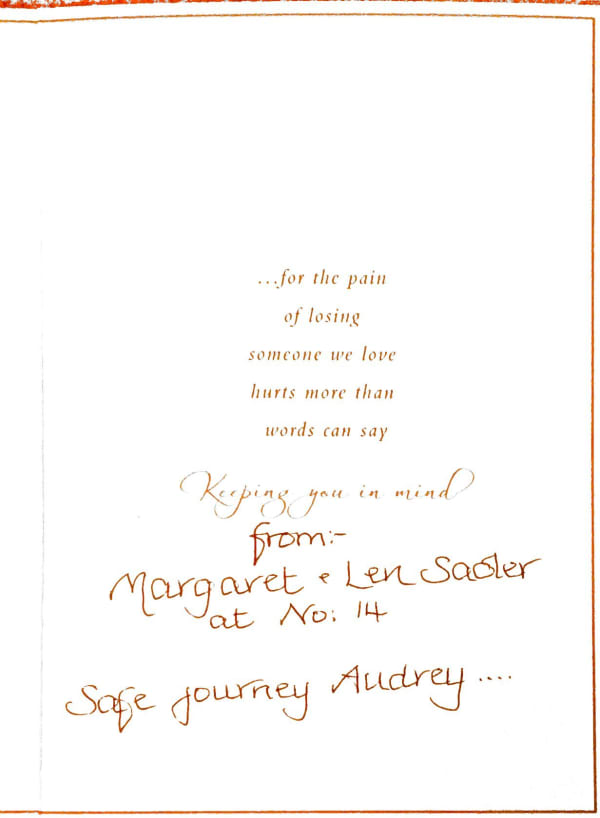 ...for the pain
of losing
someone we love
hurts more than
words can say
Keeping you in mind
from:-
Margaret & Len Sadler
at No: 14
Safe journey Audrey ....